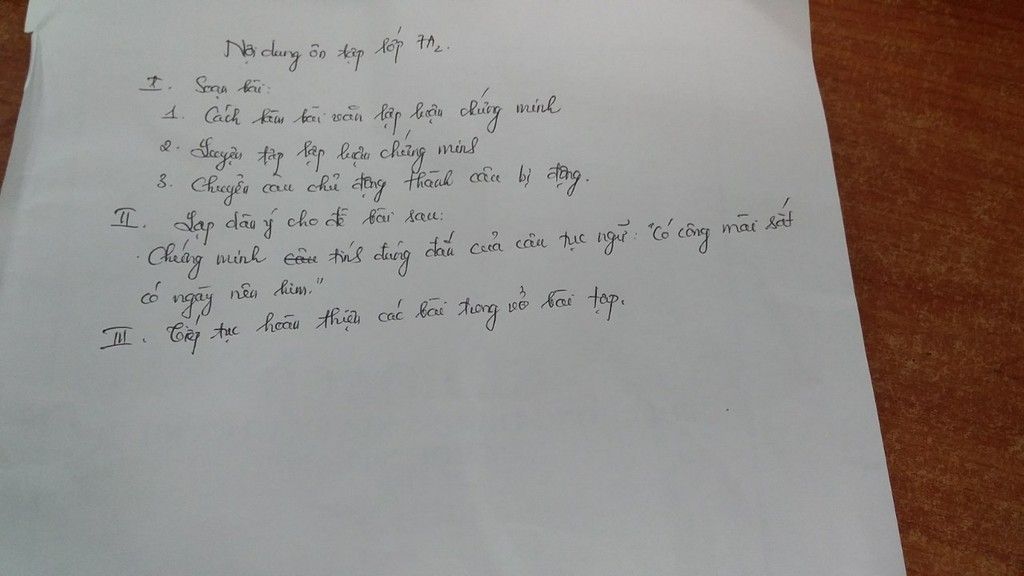 Nội dung ôn tập lớp 7A2.
I. Soạn bài:
1. Cách làm bài văn lập luận chứng minh
2. Luyện tập lập luận chứng minh
3. Chuyển câu chủ động thành câu bị động.
II. Lập dàn ý cho đề bài sau:
Chứng minh câu tính đúng đắn của câu tục ngữ: "Có công mài sắt
có ngày nên kim."
III. Tiếp tục hoàn thiện các bài trong vở bài tập.